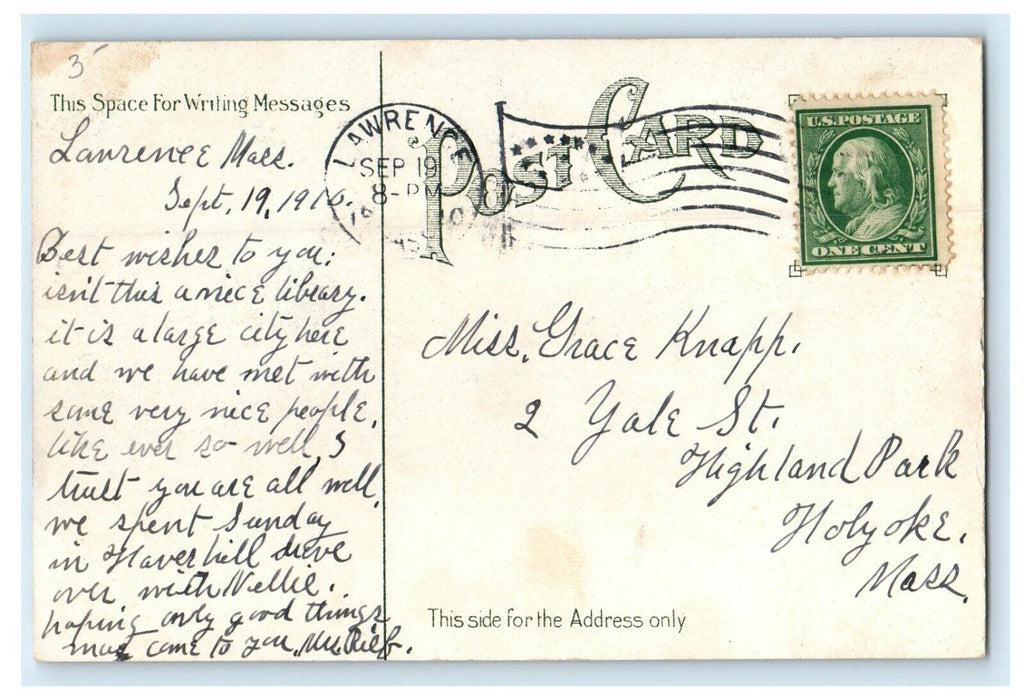 3
This Space For Writing Messages
Lawrence Mass.
Sept. 19, 1910.
Best wishes to you:
isn't this a nice library.
it is a large city here
and we have met with
some very nice people,
like ever so well, I
trust you are all well,
we spent Sunday
in Haverhill drove
over with Nellie.
hoping only good things
may come to you,
LAWRENCE
SEP 19
8-PM
POST CARD
U.S. POSTAGE
ONE CENT
Miss. Grace Knapp.
2 Yale St.
Highland Park
Holyoke.
Mass.
This side for the Address only